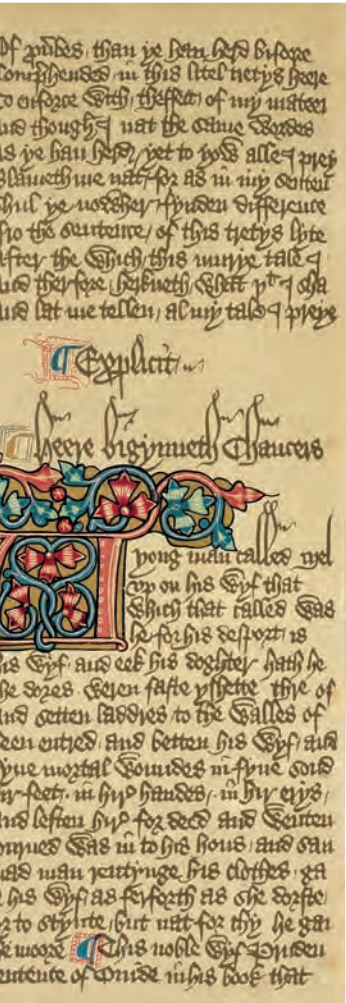 Of prouerbes / than ye han herd bifore
Comprehended / in this litel tretys heere
To enforce with / theffect of my mateer
And though I nat the same wordes
as ye han herd / yet to yow alle I prey
Blameth me nat / for as in my sentence
Shul ye nowher / fynden difference
ffro the sentence / of this tretys lyte
After the which / this murye tale I
And therfore herkneth / what þt I sha
And lat me tellen / al my tale I preye
Explicit
Heere bigynneth Chaucers
A yong man called Mel
vp on his wyf that
which that called was
he for his desport / is
his wyf / and eek his doghter hath he
the dores weren faste yshette thre of
and setten laddres to the walles of
been entred / and betten his wyf / and
fyue mortal woundes in fyue sond
hir feet / in hir handes / in hir erys /
and leften hir for deed and wenten
torned was in to his hous / and sau
mad man rentynge his clothes / ga
his wyf / as ferforth as she dorste
for to stynte / but nat for thy he gan
the moore This noble wyf Pruden
sentence of Ouide in his book that